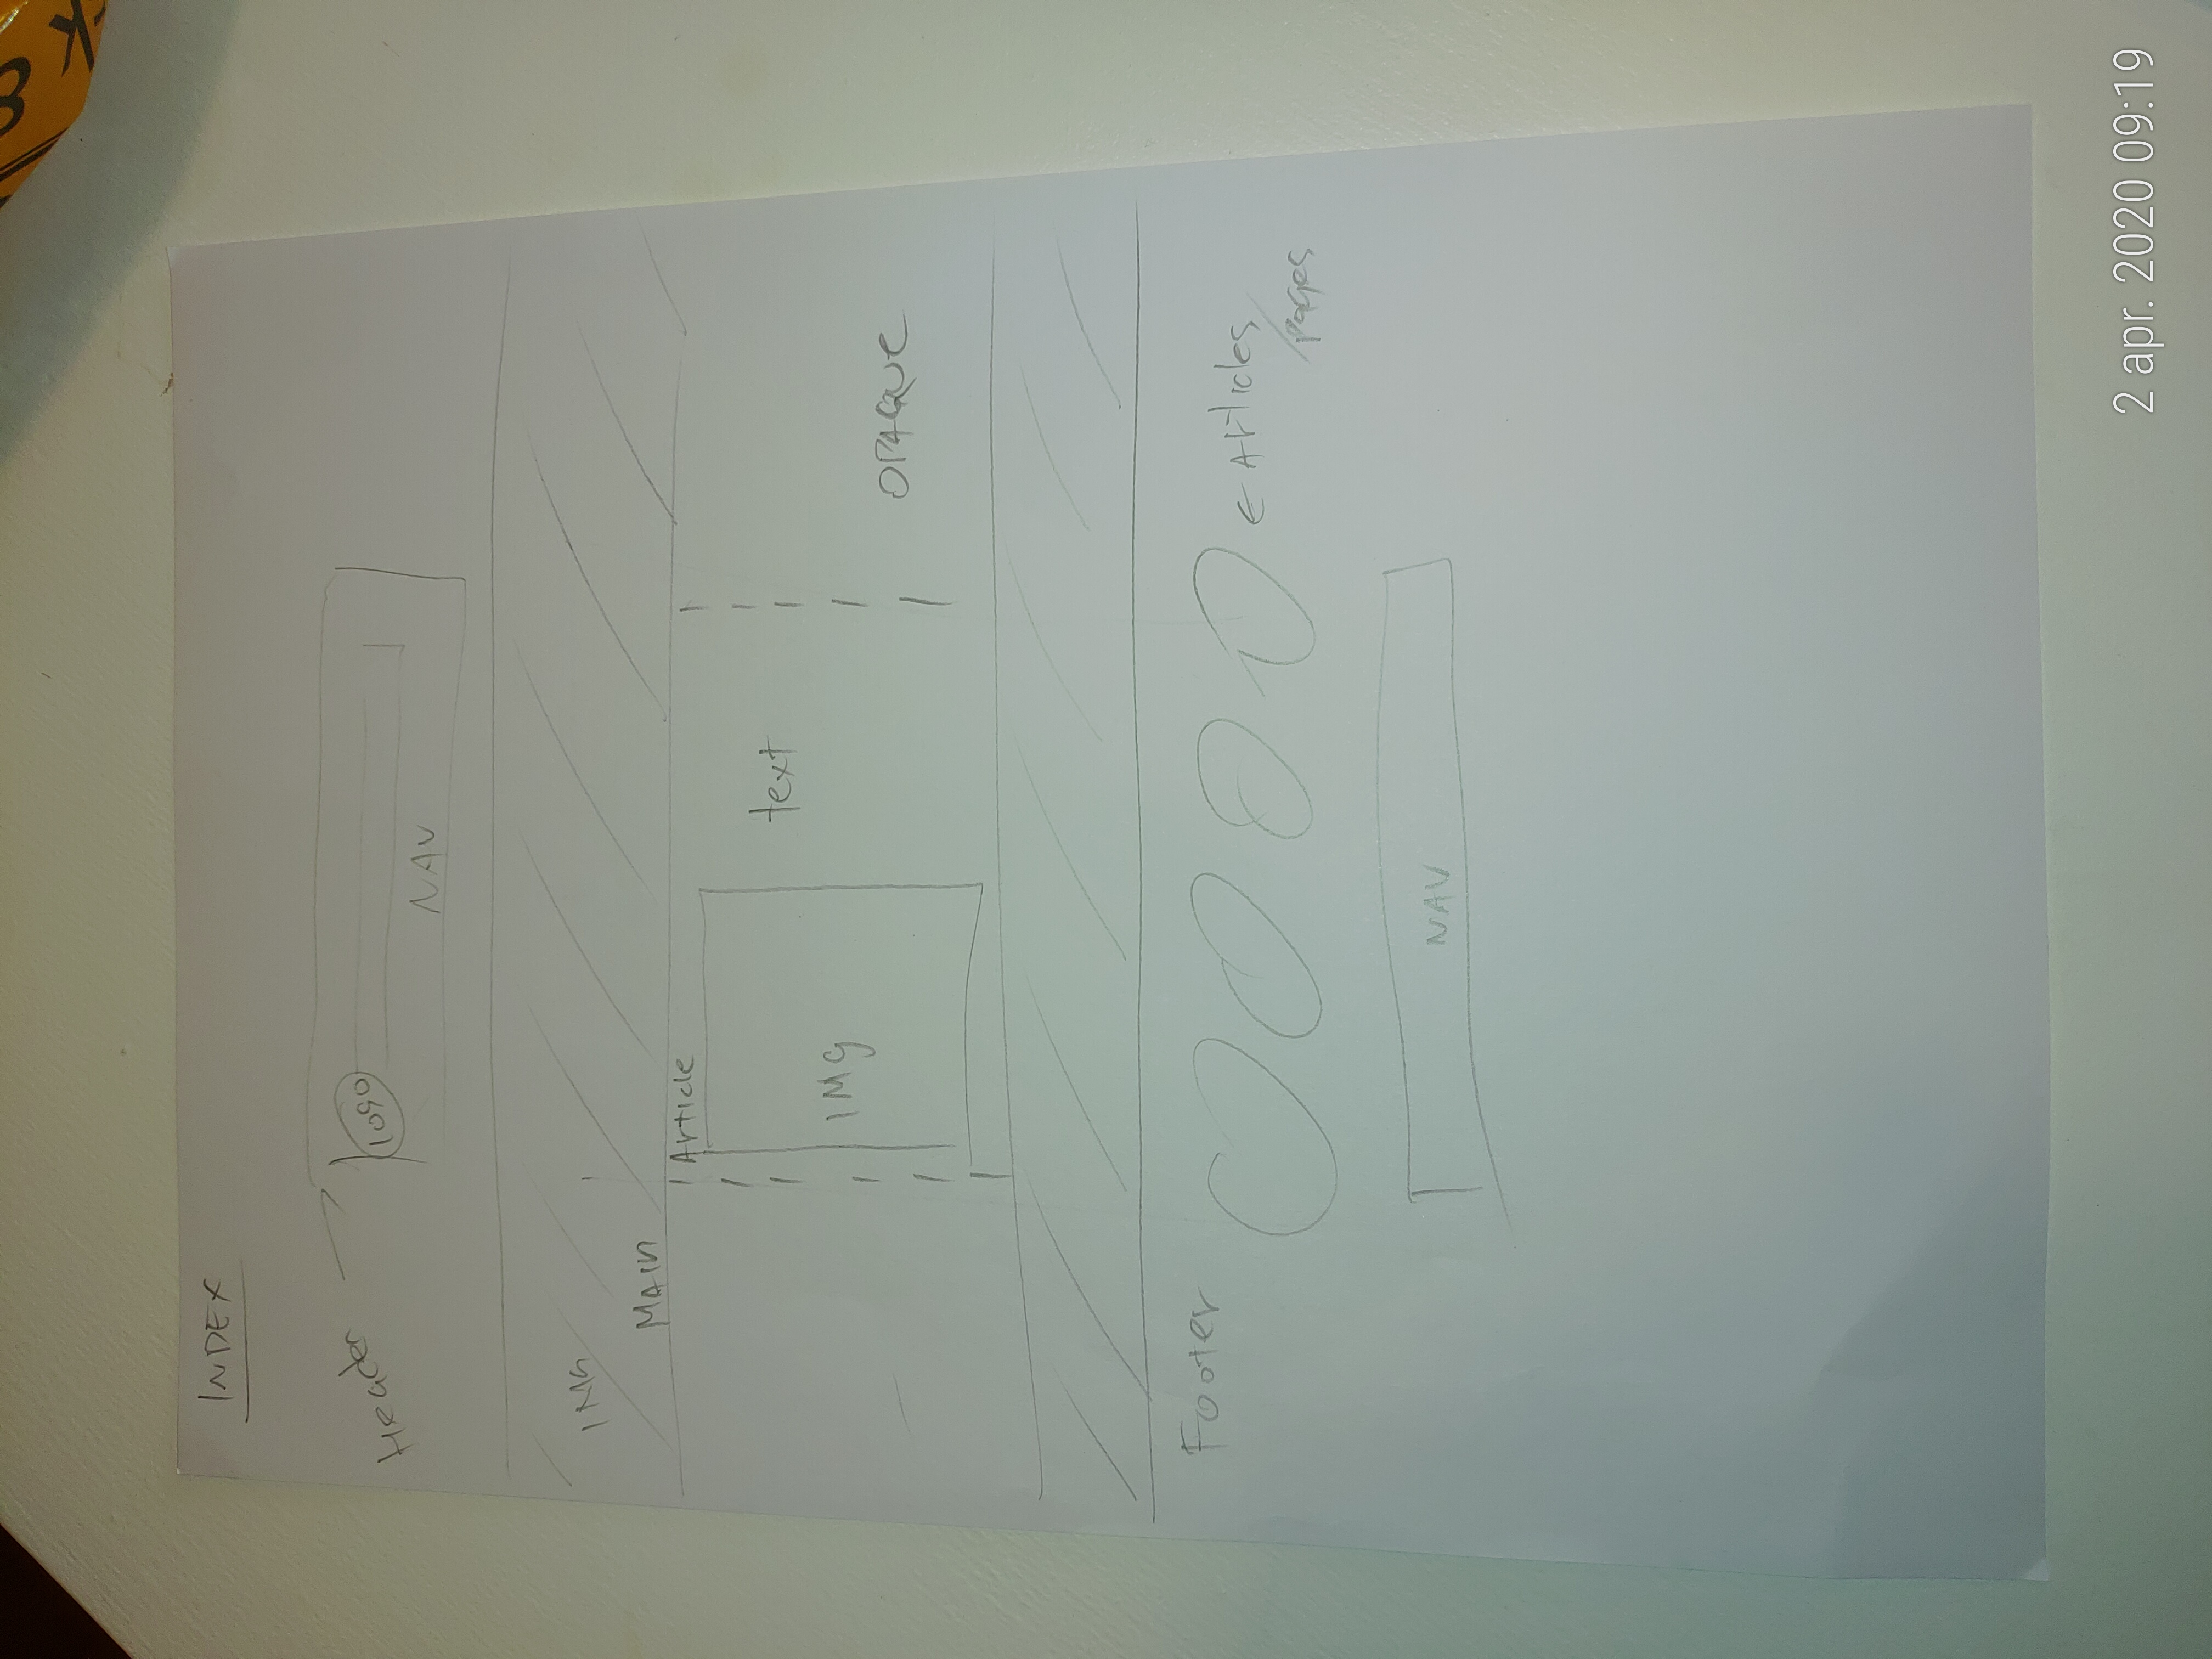 INDEX
Header
logo
NAV
IMG
MAIN
Article
IMg
text
OPAQUE
Footer
← Articles
/pages
NAV
2 apr. 2020 09:19